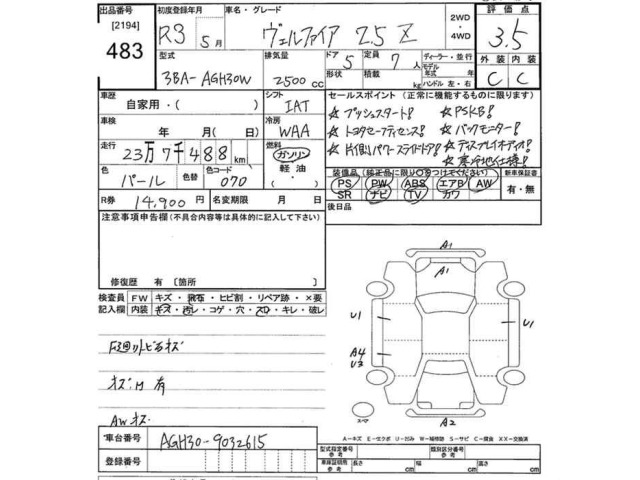 出品番号 初度登録年月 車名・グレード 2WD 評価点
[2194] R3 5月 ヴェルファイア 2.5 Z ・4WD 3.5
483 型式 排気量 ドア 定員 ディーラー・並行 外装 内装
3BA-AGH30W 2500cc 5 7人 モデル年式 年 C C
形状 積載 kg ハンドル 左・右
車歴 シフト セールスポイント(正常に機能するものに限ります)
自家用・( ) IAT ☆プッシュスタート! ☆PSKB!
車検 冷房 ☆トヨタセーフティセンス! ☆バックモニター!
年 月( 日) WAA ☆片側パワースライドドア! ☆ディスプレイオーディオ!
走行 燃料 ☆寒冷地仕様!
23万7千488km ガソリン・軽油・
色 色替 色コード 装備品(純正品に限り○をつけてください) 新車保証書
パール 070 PS PW ABS エアB AW 有・無
SR ナビ TV カワ
R券 14,900円 名変期限 月 日 後日品
注意事項申告欄(不具合内容等は具体的に記入して下さい)
修復歴 有 〔箇所 〕
検査員記入欄 FW キズ・飛石・ヒビ割・リペア跡・×要
内装 キズ・汚レ・コゲ・穴・スレ・キレ・破レ
キズ凹 有
AWキズ
A1
A1
U1
U1
A4
U2
A2
スペア
A-キズ E-エクボ U-凹み W-補修跡 S-サビ C-腐蝕 XX-交換済
車台番号 AGH30-9032615
登録番号
型式指定番号参考 類別区分番号参考
車庫証明用参考 長さ cm 幅 cm 高さ cm